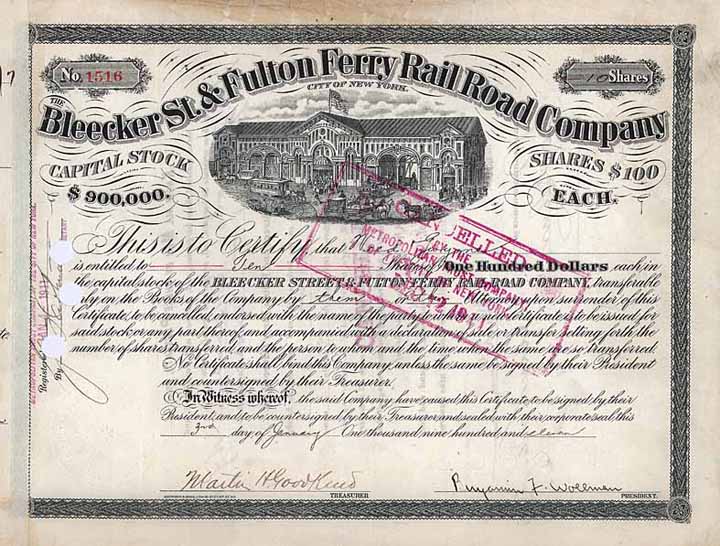 No. 1516
10 Shares
THE
Bleecker St. & Fulton Ferry Rail Road Company
CITY OF NEW YORK.
CAPITAL STOCK
$ 900,000.
SHARES $ 100
EACH.
This is to Certify that
is entitled to Ten Shares of One Hundred Dollars each, in
the capital stock of the BLEECKER STREET & FULTON FERRY RAIL ROAD COMPANY, transferable
only on the Books of the Company by them or Attorney upon surrender of this
Certificate, to be cancelled, endorsed with the name of the party to whom a new Certificate is to be issued for
said stock or any part thereof and accompanied with a declaration of sale or transfer setting forth the
number of shares transferred, and the person to whom and the time when the same are so transferred.
No Certificate shall bind this Company, unless the same be signed by their President
and countersigned by their Treasurer.
In Witness whereof, the said Company have caused this Certificate to be signed by their
President, and to be countersigned by their Treasurer, and sealed with their corporate seal, this
3rd day of January One thousand, nine hundred and eleven
Martin H Goodkind
TREASURER
Benjamin F. Wollman
PRESIDENT.
CANCELLED
BY THE
METROPOLITAN TRUST COMPANY
OF THE CITY OF NEW YORK
Registered
By